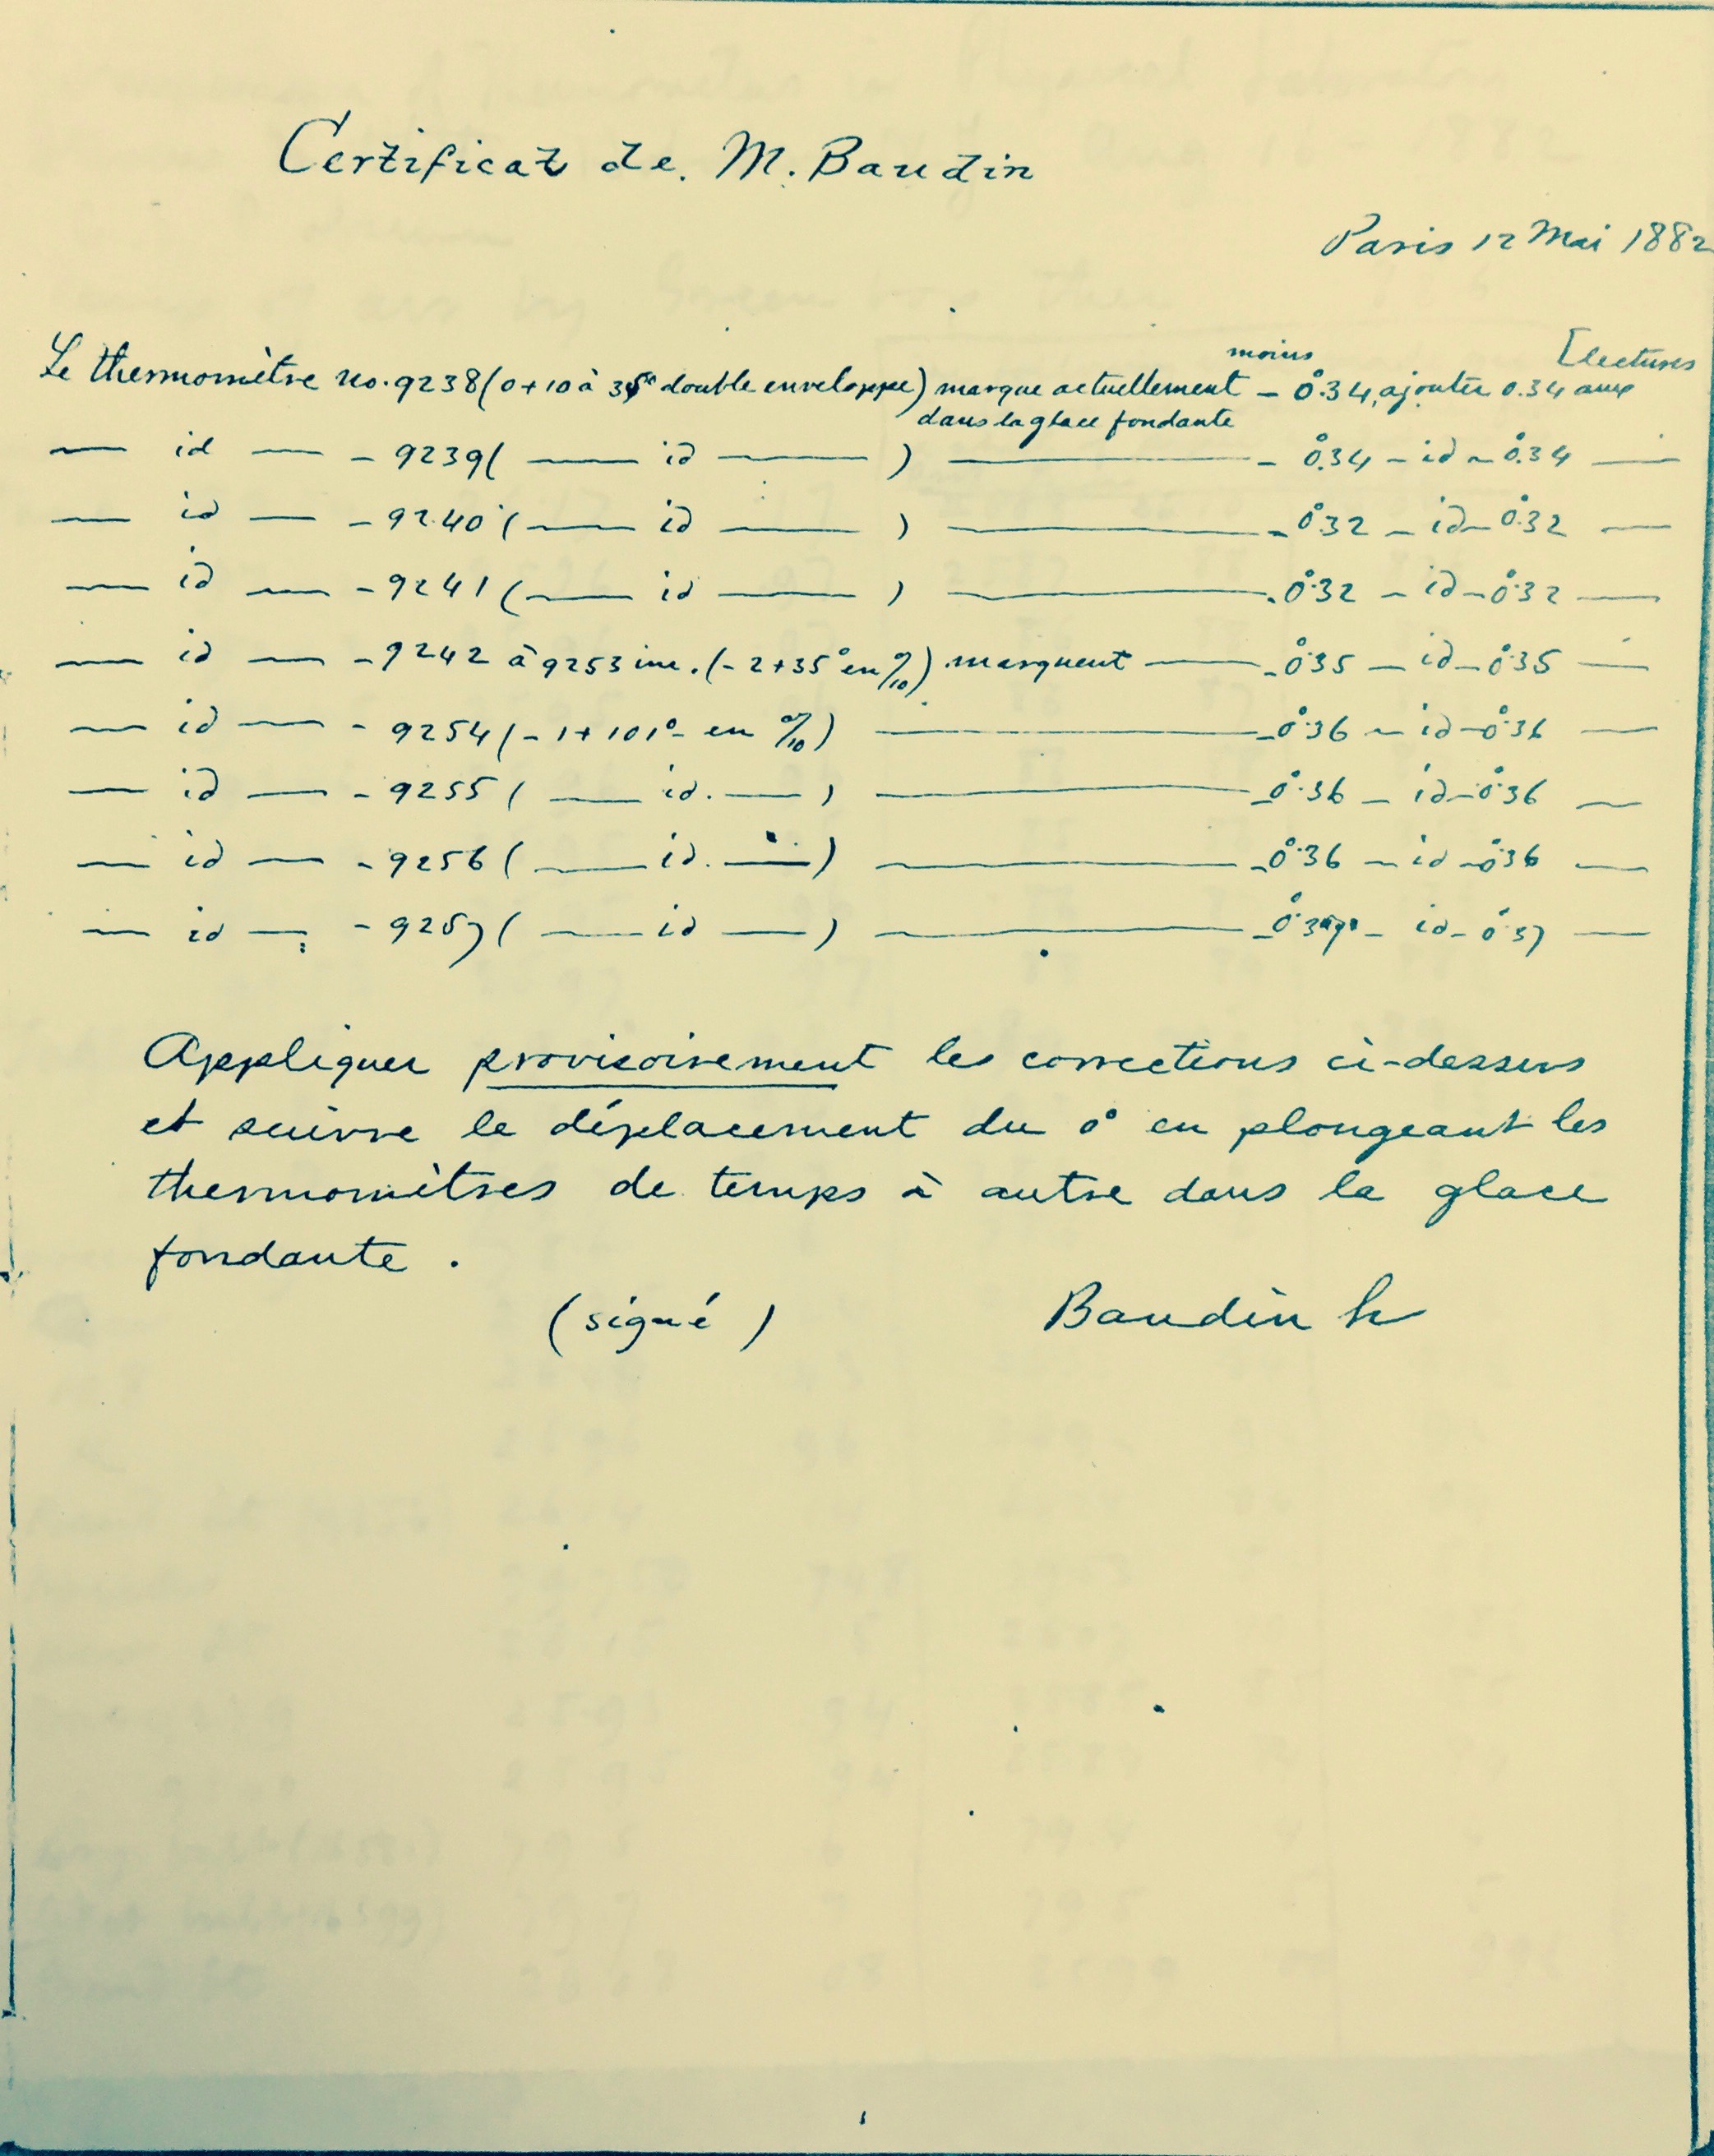 Certificat de M. Baudin
Paris 12 Mai 1882
moins [lectures
Le thermomètre no. 9238 (0+10 à 35° double enveloppe) marque actuellement – 0°.34, ajouter 0.34 aux
dans la glace fondante
— id — – 9239 ( — id — ) — – 0°.34 – id – 0°.34 —
— id — – 9240 ( — id — ) — – 0°.32 – id – 0°.32 —
— id — – 9241 ( — id — ) — – 0°.32 – id – 0°.32 —
— id — – 9242 à 9253 inc. (– 2+35° en °/10) marquent — – 0°.35 – id – 0°.35 —
— id — – 9254 (– 1+101° – en °/10) — – 0°.36 – id – 0°.36 —
— id — – 9255 ( — id. — ) — – 0°.36 – id – 0°.36 —
— id — – 9256 ( — id. — ) — – 0°.36 – id – 0°.36 —
— id — – 9257 ( — id — ) — – 0°.37 – id – 0°.37 —
Appliquer provisoirement les corrections ci-dessus
et suivre le déplacement du 0° en plongeant les
thermomètres de temps à autre dans la glace
fondante.
(signé) Baudin